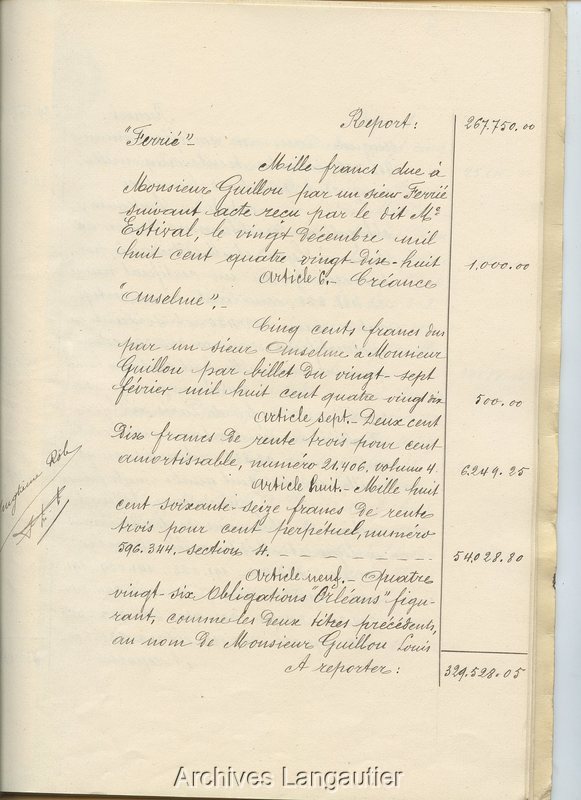 Report: 267.750.00
"Ferrié"-
Mille francs due à
Monsieur Guillou par un sieur Ferrié
suivant acte reçu par le dit Me
Estival, le vingt décembre mil
huit cent quatre vingt-dix-huit 1,000.00
Article 6.- Créance
"Anselme".-
Cinq cents francs dus
par un sieur Anselme à Monsieur
Guillou par billet du vingt-sept
février mil huit cent quatre vingt dix 500.00
Article sept.- Deux cent
dix francs de rente trois pour cent
amortissable, numéro 21.406, volume 4. 6.249.25
Article huit.- Mille huit
cent soixante-seize francs de rente
trois pour cent perpétuel, numéro
596.344. section 4. 54.028.80
Article neuf.- Quatre
vingt-six obligations "Orléans" figu-
rant, comme les deux titres précédents,
au nom de Monsieur Guillou Louis
A reporter: 329.528.05
Archives Langautier